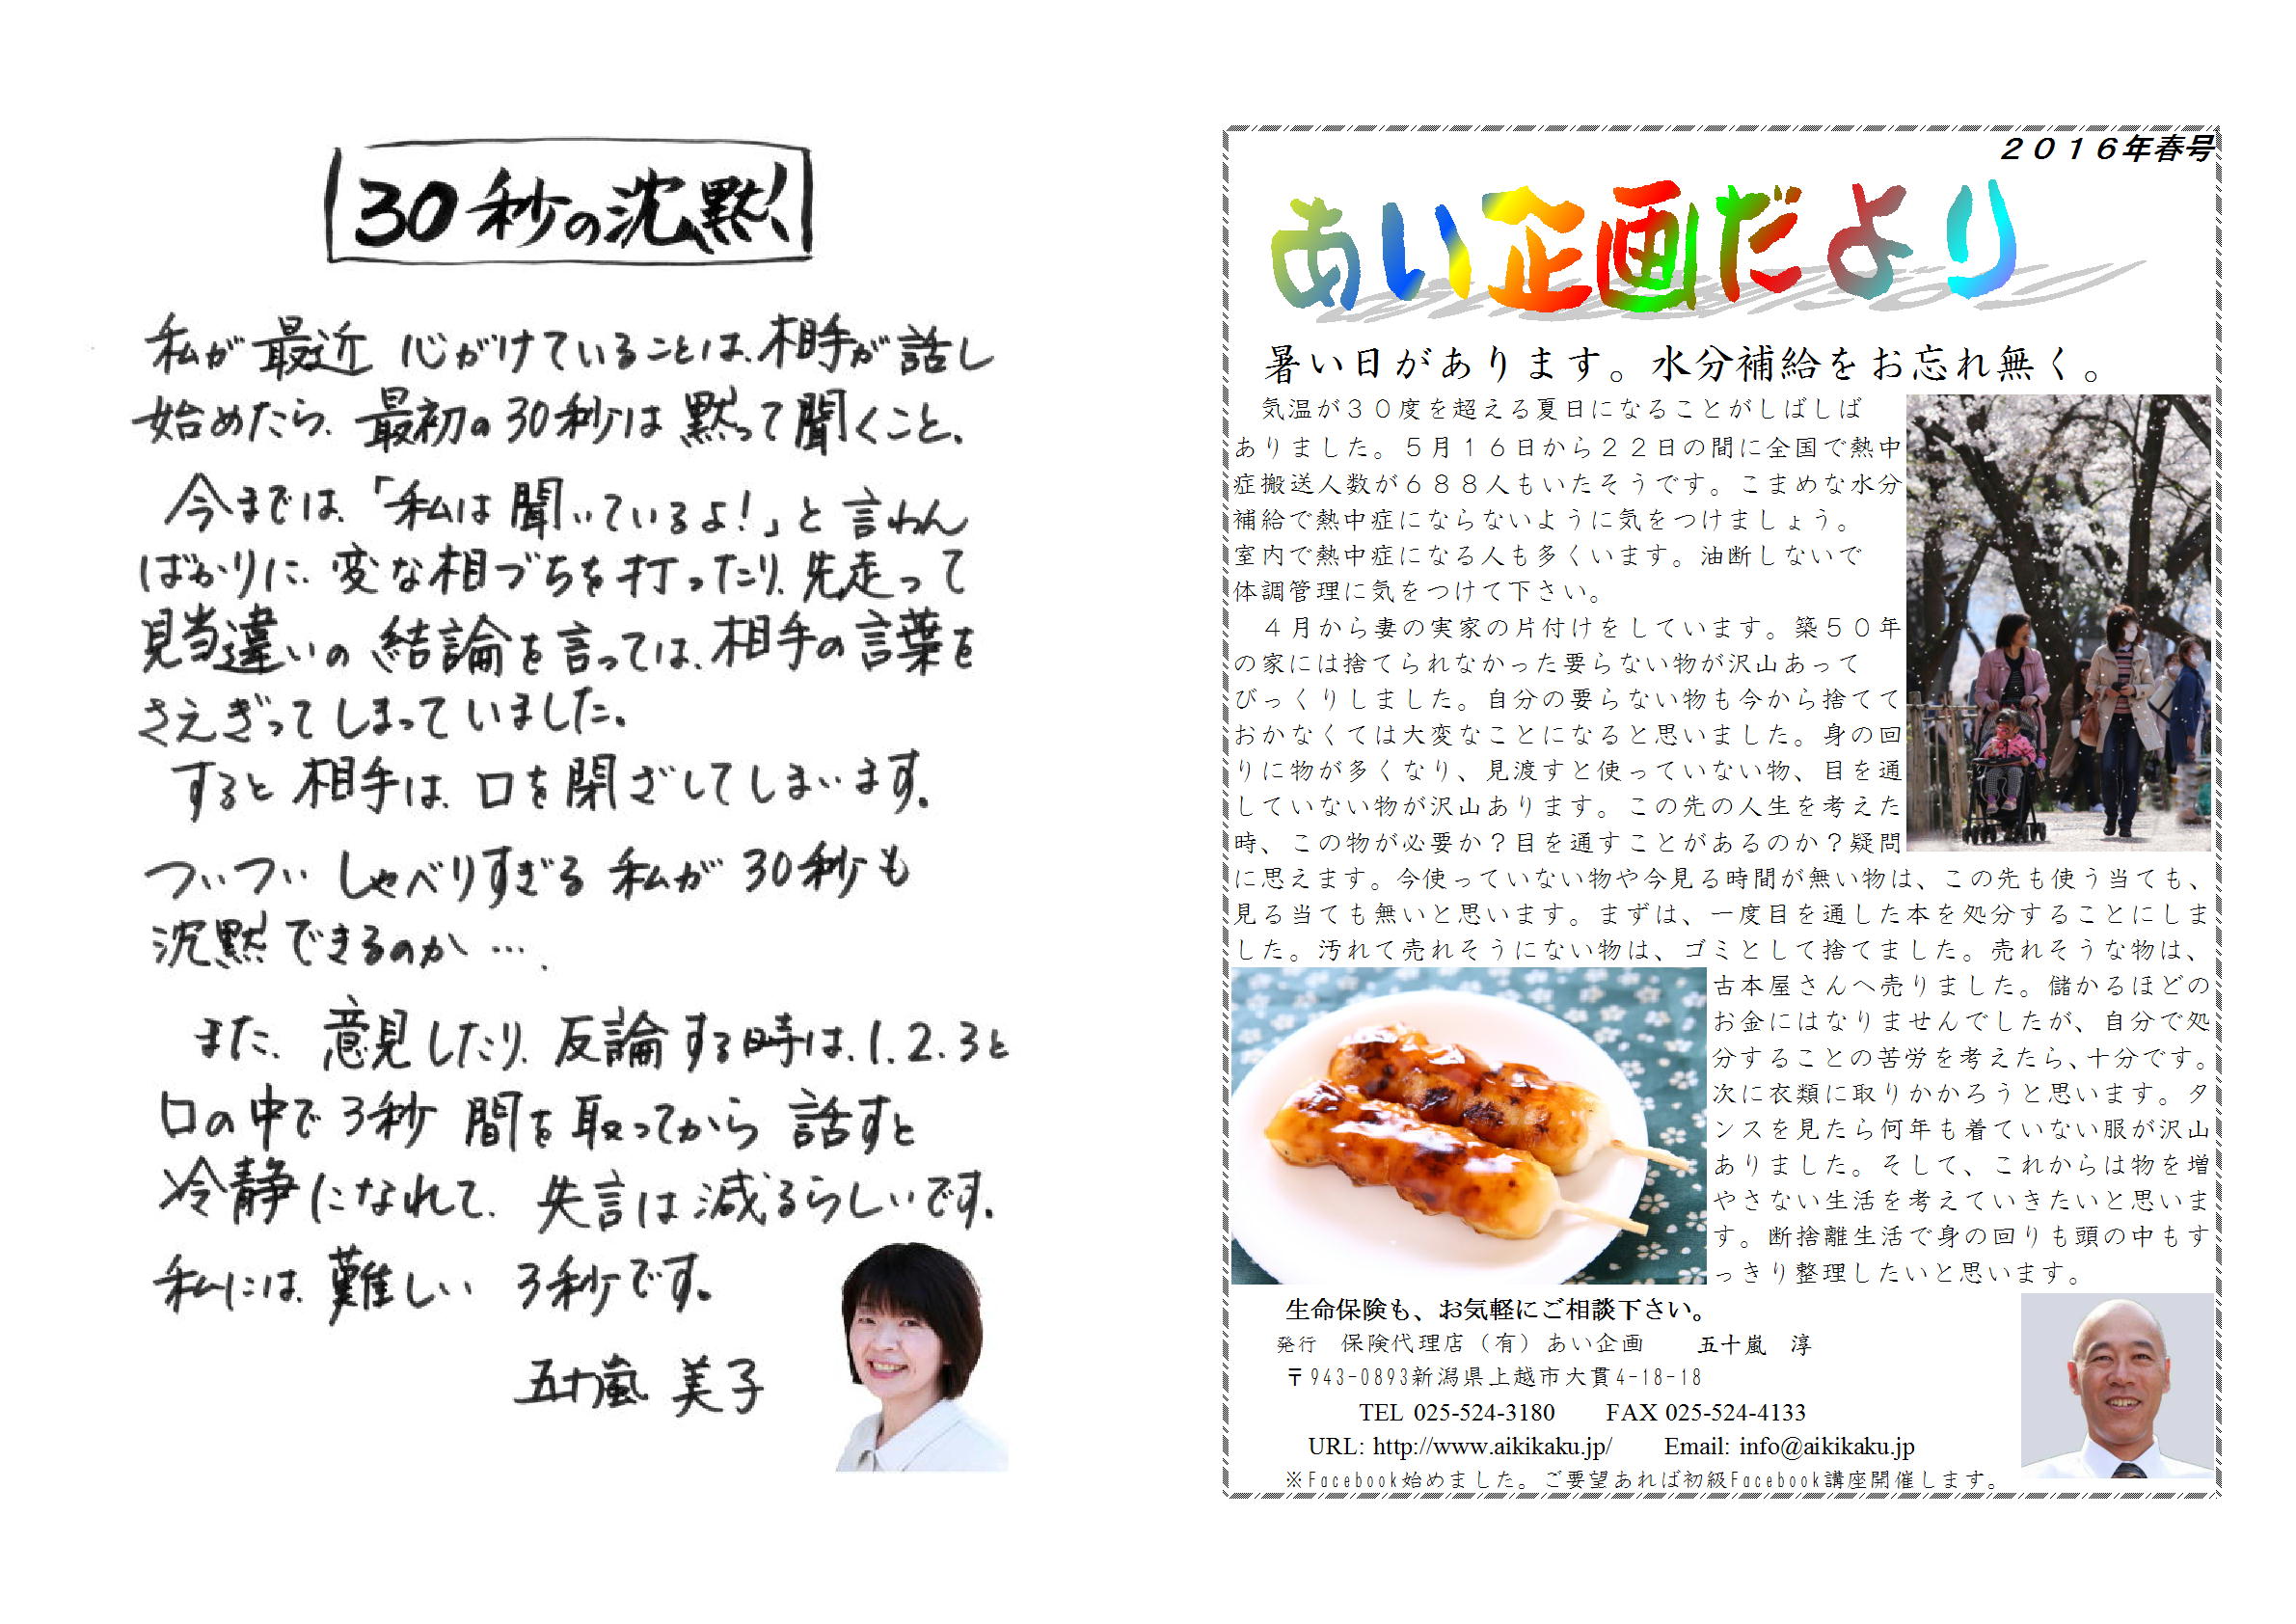 30秒の沈黙!
私が最近 心がけていることは、相手が話し
始めたら、最初の30秒は黙って聞くこと、
今までは、「私は聞いているよ!」と言わん
ばかりに、変な相づちを打ったり、先走って
見当違いの結論を言っては、相手の言葉を
さえぎってしまっていました。
すると相手は、口を閉ざしてしまいます。
ついついしゃべりすぎる私が30秒も
沈黙できるのか…。
また、意見したり、反論する時は、1.2.3と
口の中で3秒間を取ってから話すと
冷静になれて、失言は減るらしいです。
私には、難しい 3秒です。
五十嵐 美子
2016年春号
あい企画だより
暑い日があります。水分補給をお忘れ無く。
気温が30度を超える夏日になることがしばしば
ありました。5月16日から22日の間に全国で熱中
症搬送人数が688人もいたそうです。こまめな水分
補給で熱中症にならないように気をつけましょう。
室内で熱中症になる人も多くいます。油断しないで
体調管理に気をつけて下さい。
4月から妻の実家の片付けをしています。築50年
の家には捨てられなかった要らない物が沢山あって
びっくりしました。自分の要らない物も今から捨てて
おかなくては大変なことになると思いました。身の回
りに物が多くなり、見渡すと使っていない物、目を通
していない物が沢山あります。この先の人生を考えた
時、この物が必要か?目を通すことがあるのか?疑問
に思えます。今使っていない物や今見る時間が無い物は、この先も使う当ても、
見る当ても無いと思います。まずは、一度目を通した本を処分することにしま
した。汚れて売れそうにない物は、ゴミとして捨てました。売れそうな物は、
古本屋さんへ売りました。儲かるほどの
お金にはなりませんでしたが、自分で処
分することの苦労を考えたら、十分です。
次に衣類に取りかかろうと思います。タ
ンスを見たら何年も着ていない服が沢山
ありました。そして、これからは物を増
やさない生活を考えていきたいと思いま
す。断捨離生活で身の回りも頭の中もす
っきり整理したいと思います。
生命保険も、お気軽にご相談下さい。
発行 保険代理店(有)あい企画 五十嵐 淳
〒943-0893新潟県上越市大貫4-18-18
TEL 025-524-3180 FAX 025-524-4133
URL: http://www.aikikaku.jp/ Email: info@aikikaku.jp
※Facebook始めました。ご要望あれば初級Facebook講座開催します。